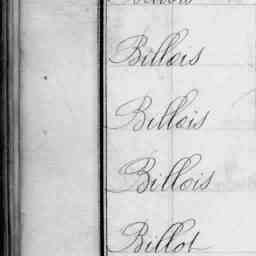 Billois
Billois
Billois
Billot